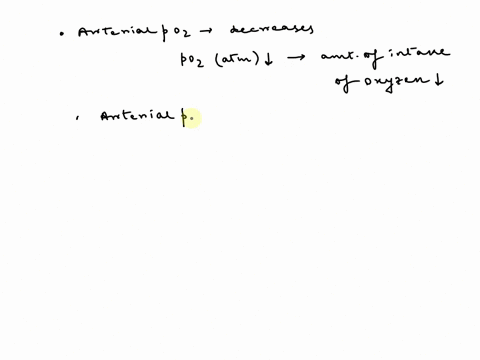 • Arterial pO₂ → decreases
pO₂ (atm) ↓ → amt. of intake
of oxygen ↓
• Arterial p.